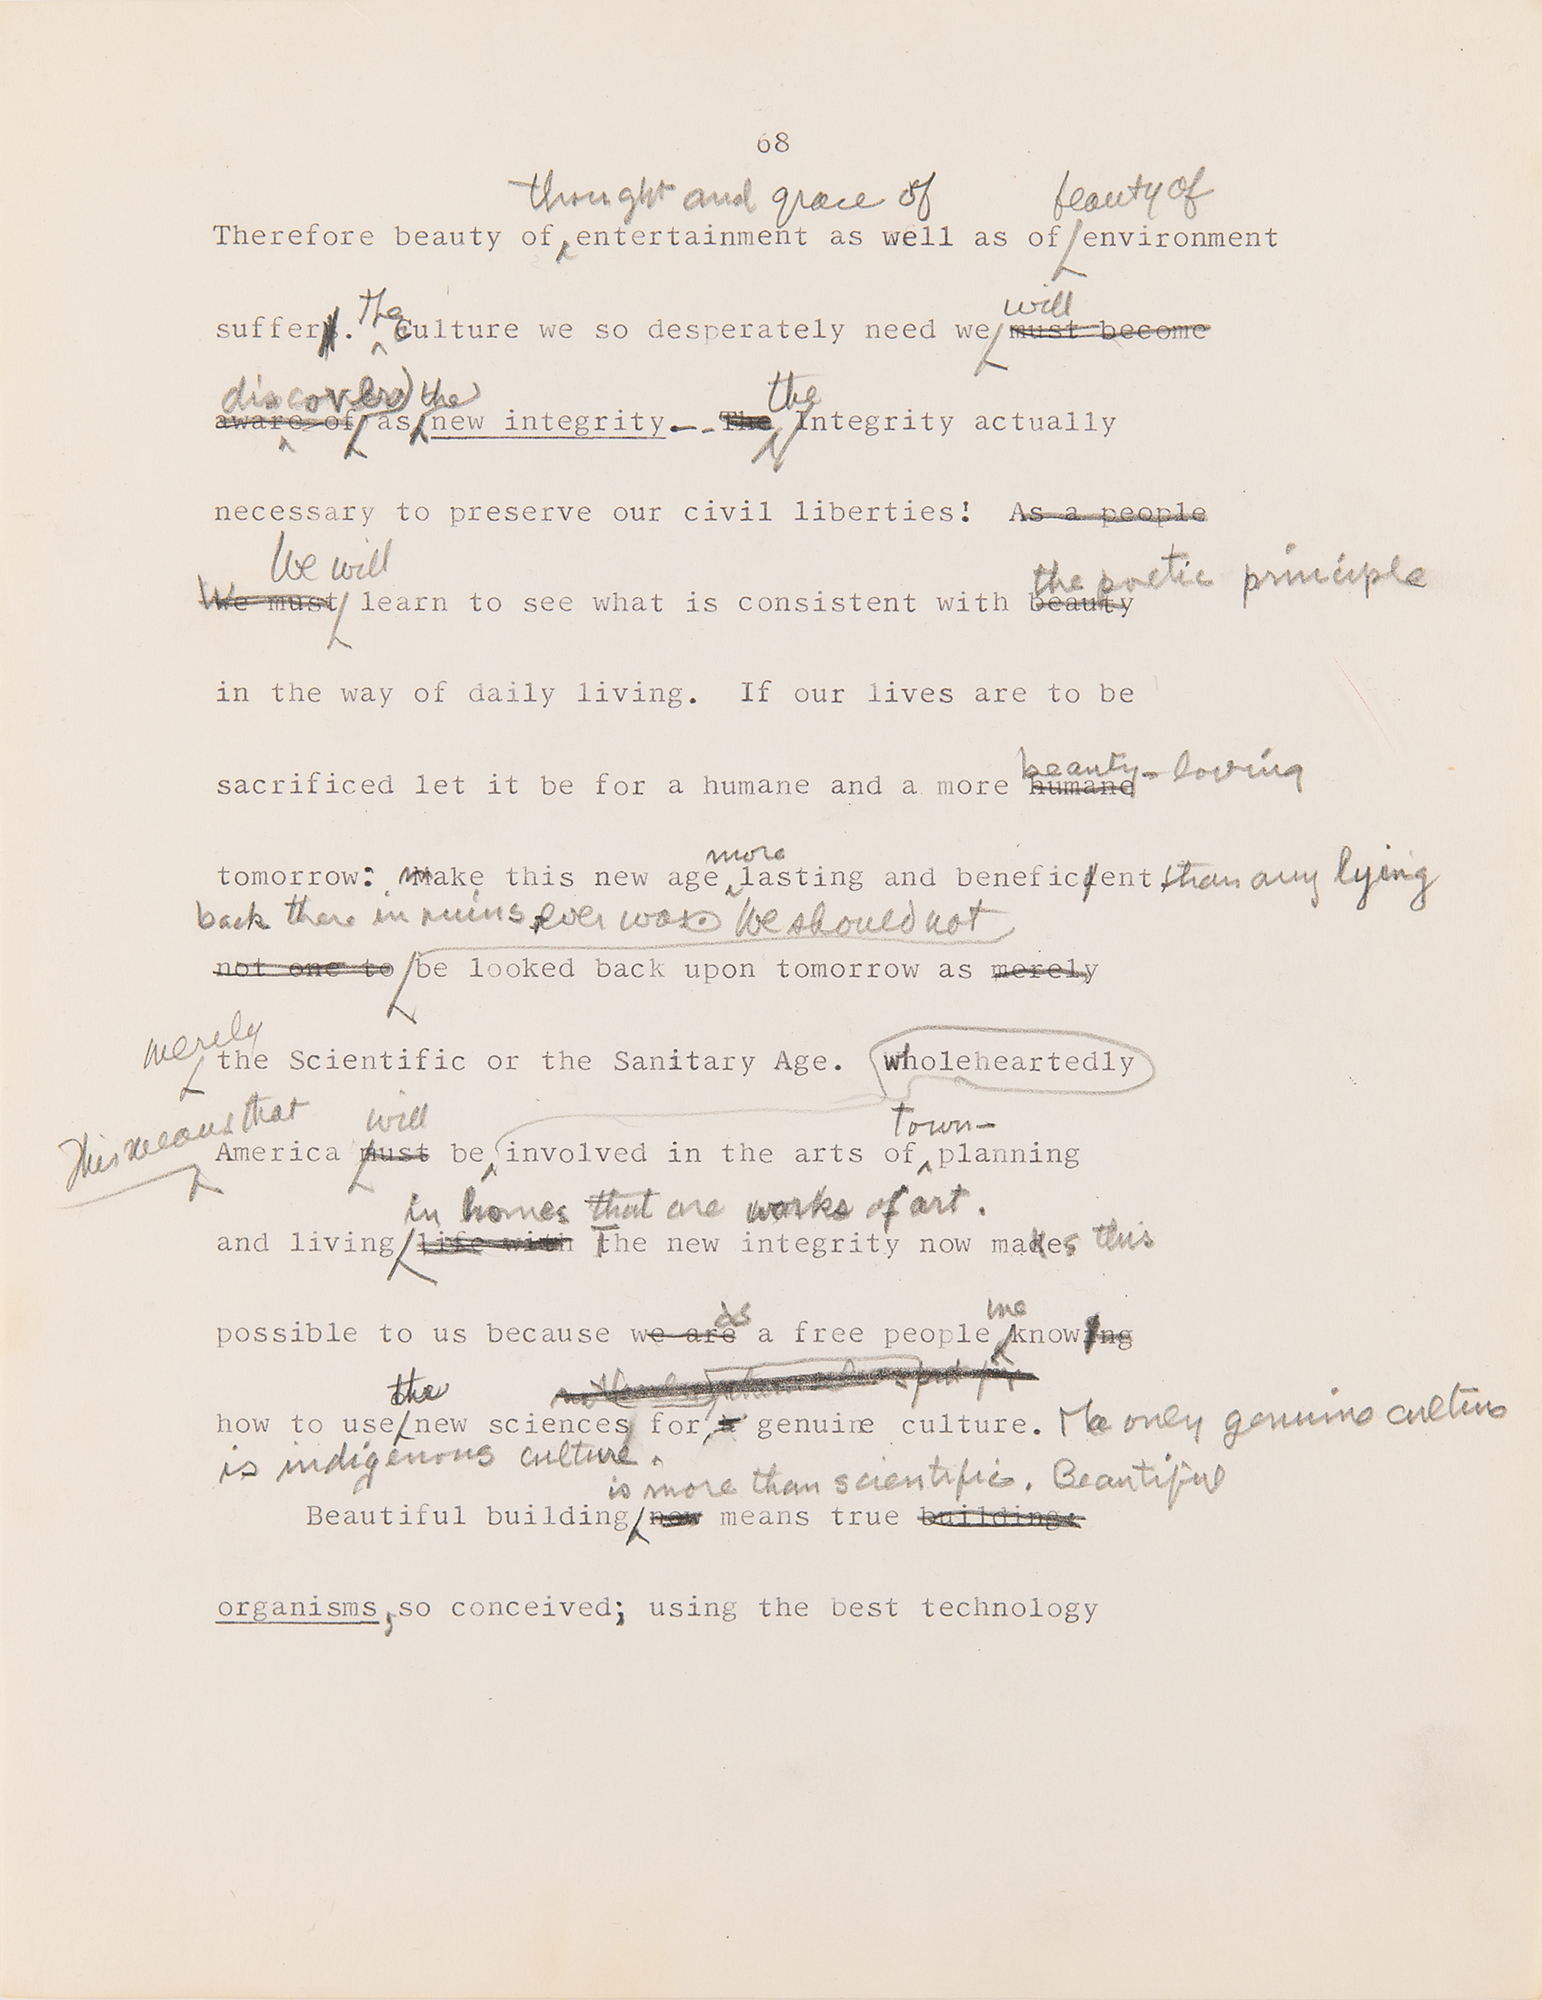 68
thought and grace of beauty of
Therefore beauty of entertainment as well as of environment
the will
suffer. Culture we so desperately need we must become
discover the the
aware of as new integrity -- The Integrity actually
necessary to preserve our civil liberties! As a people
We will the poetic principle
We must learn to see what is consistent with beauty
in the way of daily living. If our lives are to be
beauty-loving
sacrificed let it be for a humane and a more humane
more
tomorrow: make this new age lasting and beneficent than any lying
back there in ruins, ever was. We should not
not one to be looked back upon tomorrow as merely
merely
the Scientific or the Sanitary Age. wholeheartedly
This means that will town-
America must be involved in the arts of planning
in homes that are works of art.
and living life with The new integrity now makes this
as we
possible to us because we are a free people knowing
the
how to use new sciences for a genuine culture. The only genuine culture
is indigenous culture.
is more than scientific. Beautiful
Beautiful building now means true buildings
organisms, so conceived; using the best technology